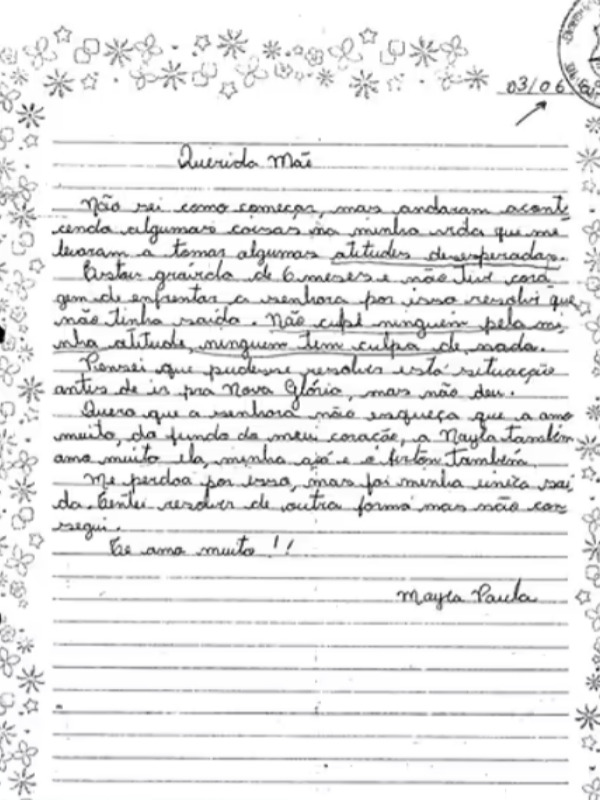 03/06
Querida Mãe
Não sei como começar, mas andaram aconte
cendo algumas coisas na minha vida que me
levaram a tomar algumas atitudes desesperadas.
Estou grávida de 6 meses e não tive cora
gem de enfrentar a senhora por isso resolvi que
não tinha saída. Não culpe ninguém pela mi
nha atitude, ninguém tem culpa de nada.
Pensei que pudesse resolver esta situação
antes de ir pra Nova Glória, mas não deu.
Quero que a senhora não esqueça que a amo
muito, do fundo do meu coração, a Nayla também
amo muito ela, minha avó e o também
Me perdoa por isso, mas foi minha unica saí
da. Tentei resolver de outra forma mas não con
segui.
Te amo muito!!
Mayra Paula